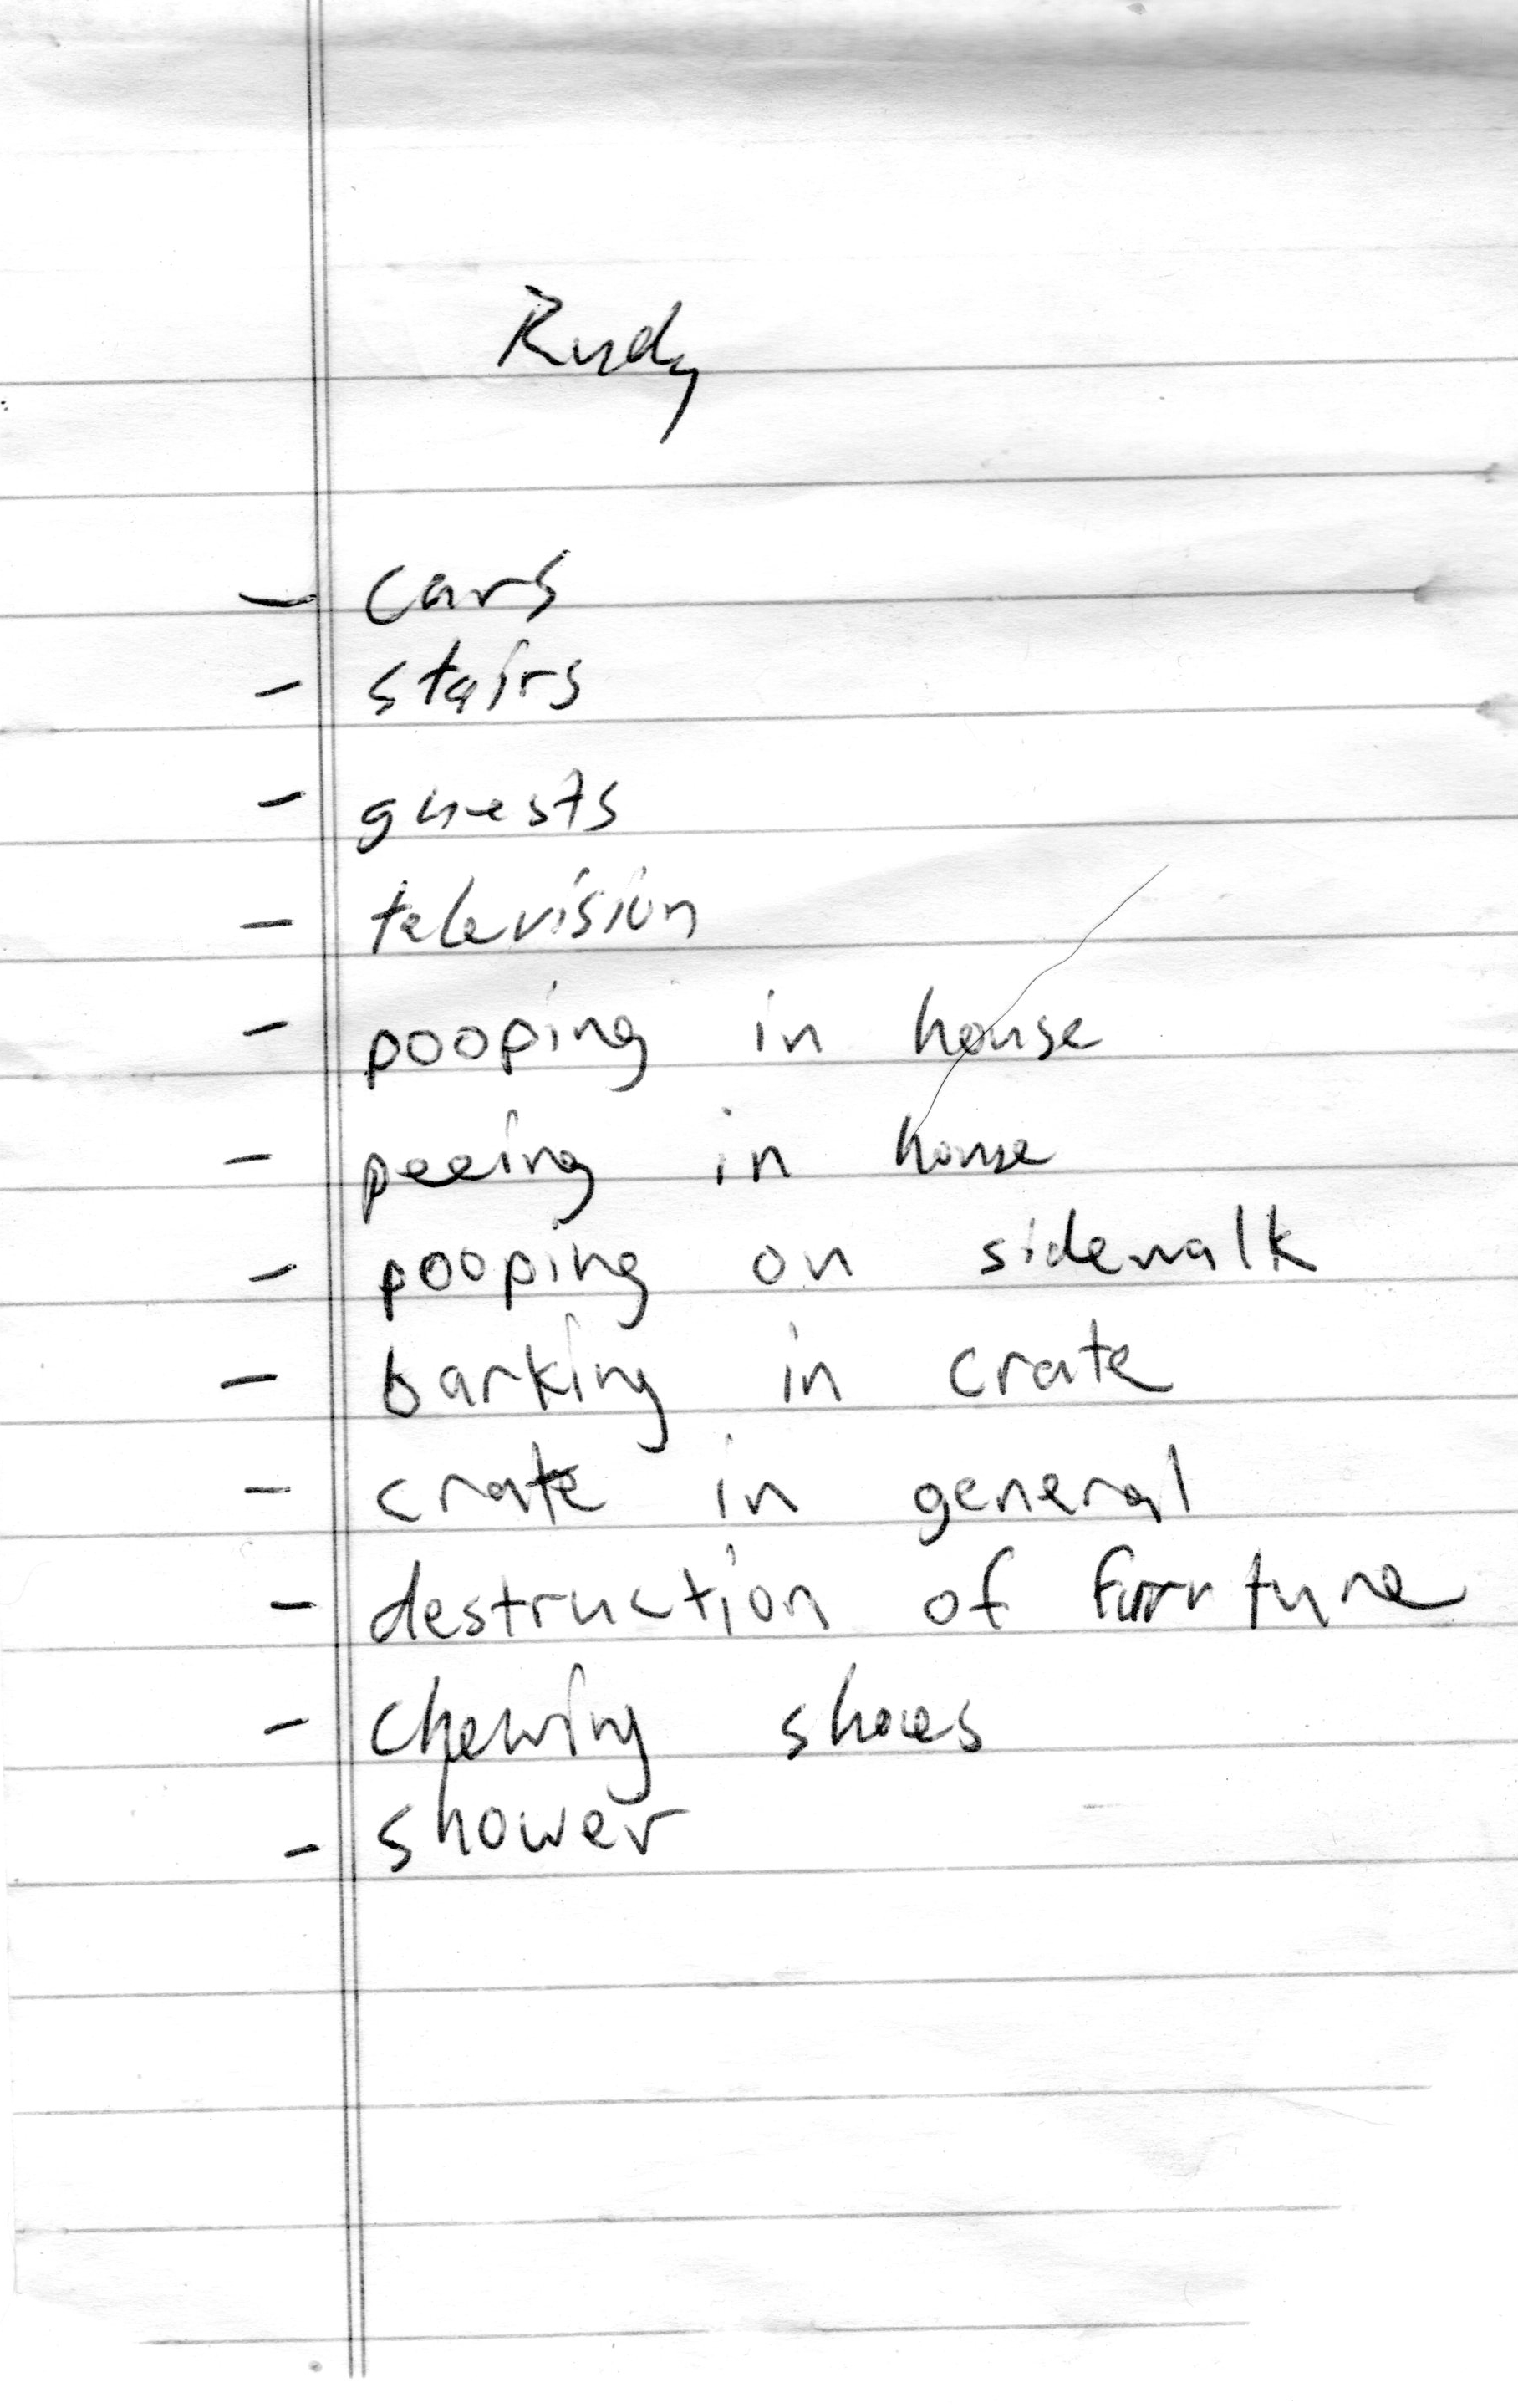 Rudy
- cars
- stairs
- guests
- television
- pooping in house
- peeing in house
- pooping on sidewalk
- barking in crate
- crate in general
- destruction of furniture
- chewing shoes
- shower